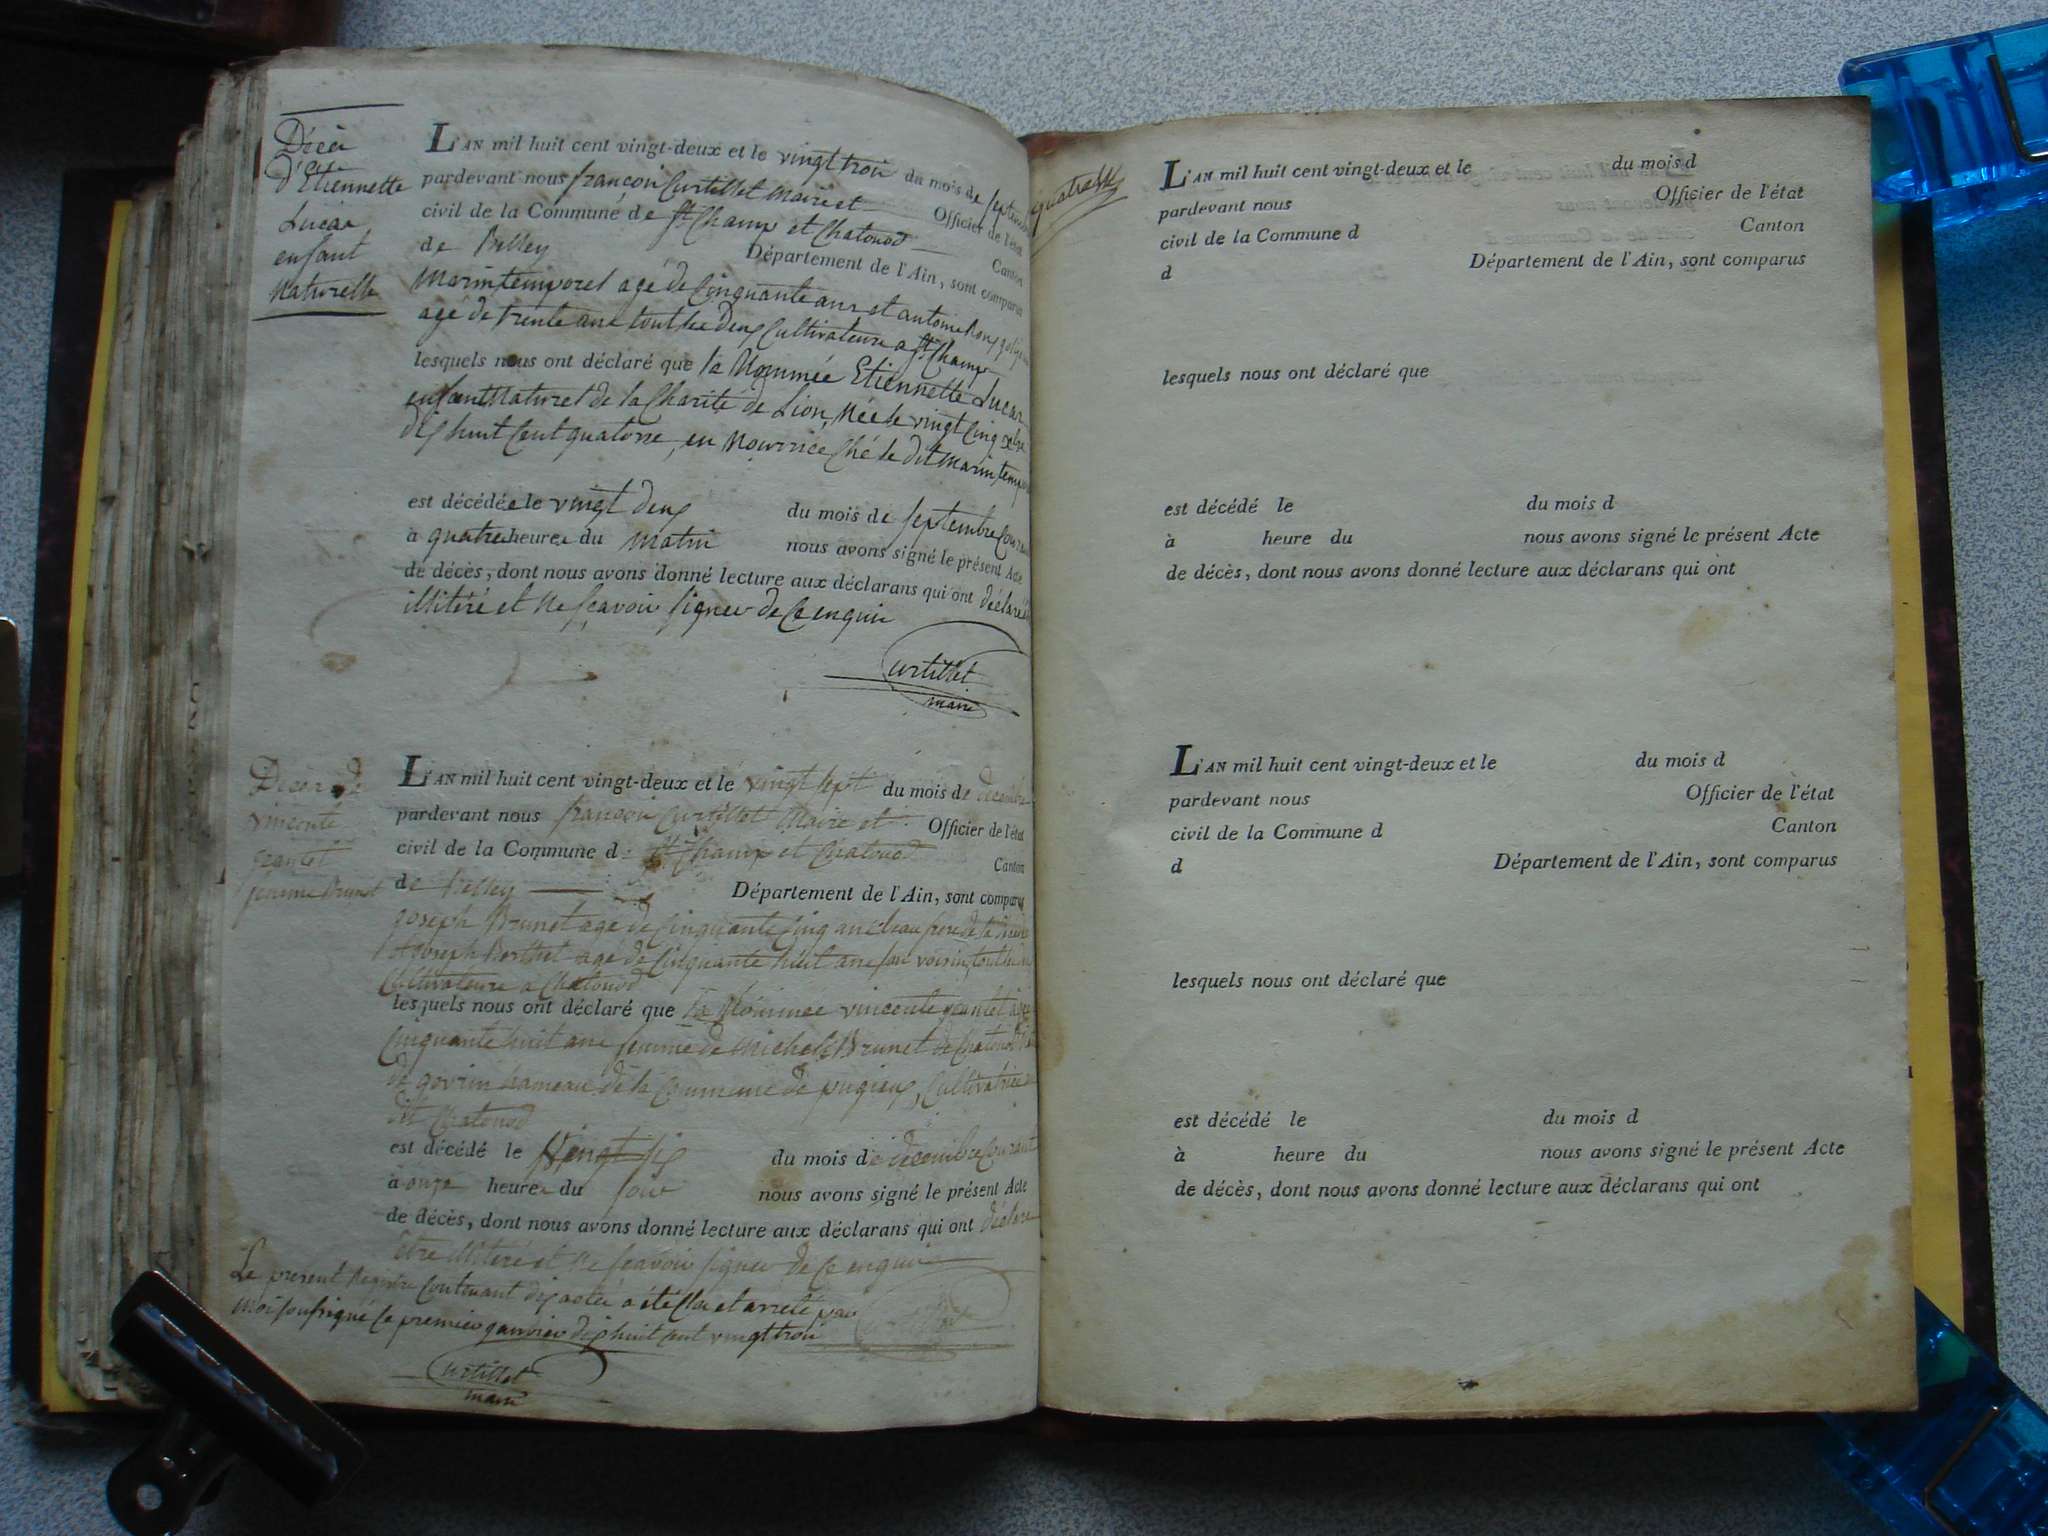 Décès
d'Etiennette
Lucas
enfant
Naturelle
L'AN mil huit cent vingt-deux et le vingt trois du mois de septembre
pardevant nous françois Curtillet maire et Officier de l'état
civil de la Commune de St Champ et Chatonod Canton
de Belley Département de l'Ain, sont comparus
Marin temporel agé de Cinquante ans et antoine
agé de trente ans tout les deux Cultivateurs a St Champ
lesquels nous ont déclaré que la Nommée Etiennette Lucas
enfant Naturel de la Charité de Lion, Née le vingt Cinq
dix huit Cent quatorze, en Nourrice Ché le dit marin
est décédée le vingt deux du mois de septembre Courant
à quatre heures du matin nous avons signé le présent Acte
de décès, dont nous avons donné lecture aux déclarans qui ont déclaré
illitéré et Ne scavoir signer de Ce enquis
Curtillet
maire
Décès de
vincente
jeantet
femme Brunet
L'AN mil huit cent vingt-deux et le vingt sept du mois de décembre
pardevant nous françois Curtillet Maire et Officier de l'état
civil de la Commune de St Champ et Chatonod Canton
de Belley Département de l'Ain, sont comparus
joseph Brunet agé de Cinquante Cinq ans beau frere de la
et joseph Berthet agé de Cinquante huit ans son voisin, tout les
Cultivateurs a Chatonod
lesquels nous ont déclaré que la Nommée vincente jeantet
Cinquante huit ans femme de michel Brunet de Chatonod
de govrin hameau de la Commune de pugieux, Cultivatrice
dit Chatonod
est décédé le vingt six du mois de décembre Courant
à onze heures du soir nous avons signé le présent Acte
de décès, dont nous avons donné lecture aux déclarans qui ont déclaré
être illitéré et Ne scavoir signer de Ce enquis
Le present Registre Contenant dix actes a été Clos et arreté par
moi soussigné Ce premier janvier dix huit Cent vingt trois
Curtillet
maire
L'AN mil huit cent vingt-deux et le du mois d
pardevant nous Officier de l'état
civil de la Commune d Canton
d Département de l'Ain, sont comparus
lesquels nous ont déclaré que
est décédé le du mois d
à heure du nous avons signé le présent Acte
de décès, dont nous avons donné lecture aux déclarans qui ont
L'AN mil huit cent vingt-deux et le du mois d
pardevant nous Officier de l'état
civil de la Commune d Canton
d Département de l'Ain, sont comparus
lesquels nous ont déclaré que
est décédé le du mois d
à heure du nous avons signé le présent Acte
de décès, dont nous avons donné lecture aux déclarans qui ont